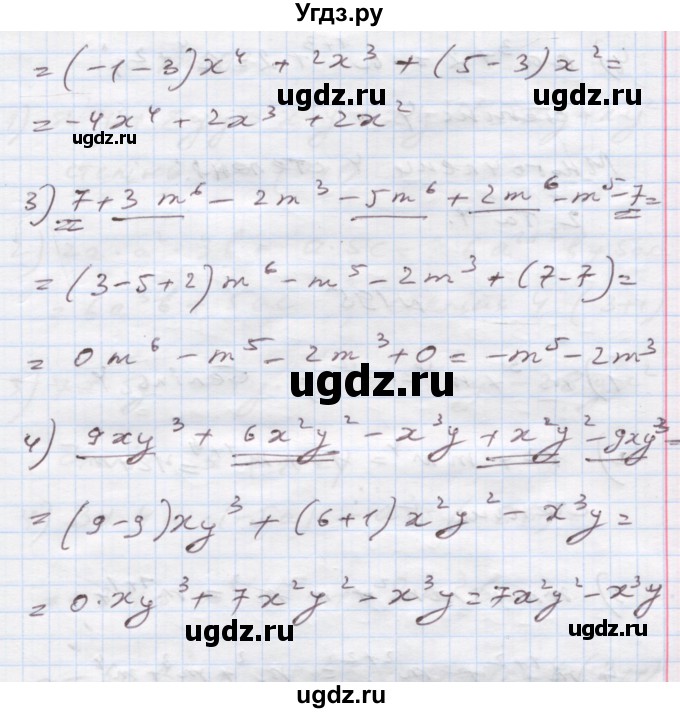 Угдз.ру
= (-1-3)x⁴ + 2x³ + (5-3)x² =
ugdz.ru ugdz.ru
= -4x⁴ + 2x³ + 2x²
ugdz.ru
3) 7 + 3m⁶ - 2m³ - 5m⁶ + 2m⁶ - m⁵ - 7 =
= (3-5+2)m⁶ - m⁵ - 2m³ + (7-7) =
= 0m⁶ - m⁵ - 2m³ + 0 = -m⁵ - 2m³
ugdz.ru
4) 9xy³ + 6x²y² - x³y + x²y² - 9xy³ =
= (9-9)xy³ + (6+1)x²y² - x³y =
= 0·xy³ + 7x²y² - x³y = 7x²y² - x³y
ugdz.ru ugdz.ru
ugdz.ru